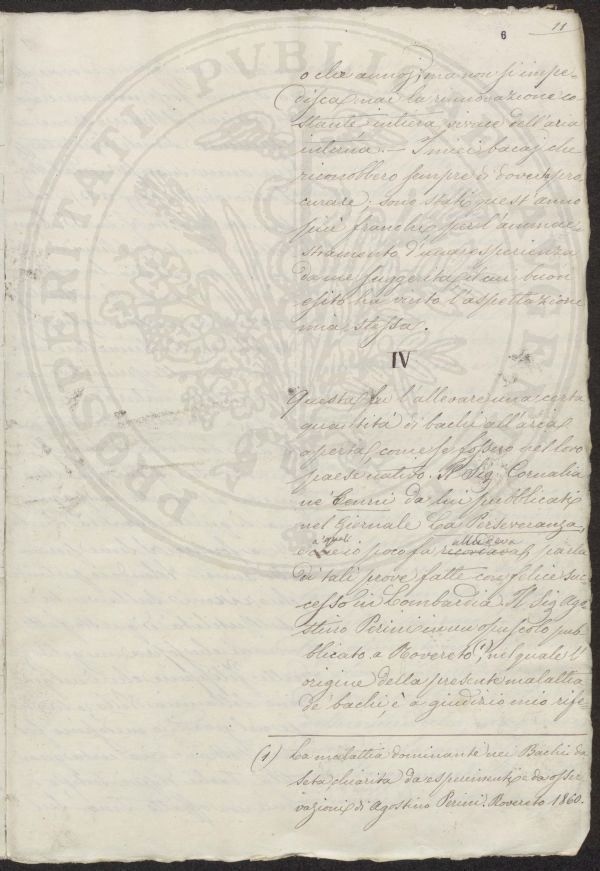 11
6
o che annoj; ma non si impe-
disca mai la rinnovazione co-
stante intiera vivace dell'aria
interna. — I miei bacaj che
riconobbero sempre di dovertj pro
curare; sono stati quest'anno
più franchi per l'ammae-
stramento d'una esperienza
da me suggerita, il cui buon
esito ha vinto l'aspettazione
mia stessa.
IV
Questa fu l'allevare una certa
quantità di bachi all'aria
aperta, come se fossero nel loro
paese nativo. Il Sig. Cornalia
ne' Cenni da lui pubblicati
nel Giornale La Perseveranza,
a' quali alludeva
ed io poco fa ricordava, parla
di tali prove fatte con felice suc-
cesso in Lombardia. Il Sig. Ago-
stino Perini in un opuscolo pub-
blicato a Rovereto (1), nel quale l'
origine della presente malattia
de' bachi, è a giudizio mio rife-
(1) La malattia dominante nei Bachi da
seta, chiarita da esperimenti e da osser-
vazioni di Agostino Perini. Rovereto 1860.
PROSPERITATI PVBLICAE AVGENDAE